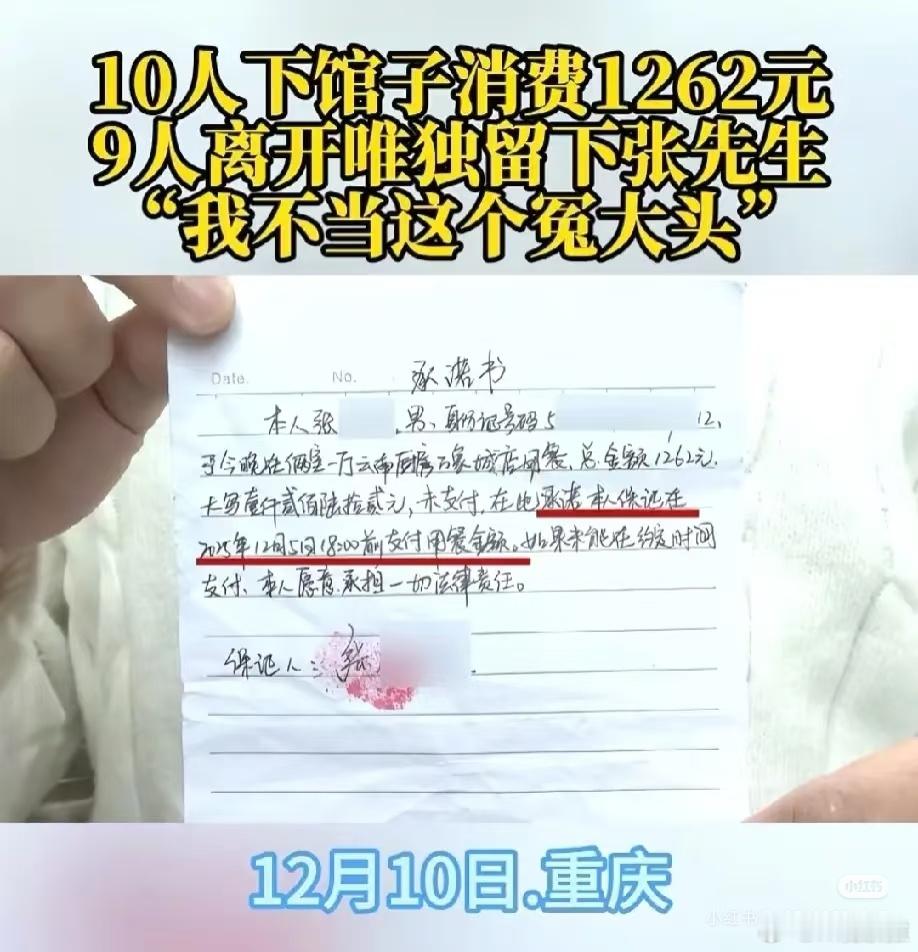 10人下馆子消费1262元
9人离开唯独留下张先生
“我不当这个冤大头”
Date. No. 承诺书
本人张 ,男、身份证号码5 12,
于今晚在俩室一厅云南厨房万象城店用餐,总金额1262元,
大写壹仟贰佰陆拾贰元,未支付,在此承诺本人保证在
2025年12月5日18:00前支付用餐金额。如果未能在约定时间
支付、本人愿意承担一切法律责任。
保证人:张
12月10日.重庆
小红书
小红书